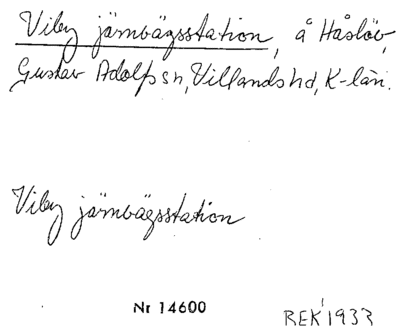 Viby järnvägsstation, å Håslöv,
Gustav Adolfs sn, Villands hd, K-län.
Viby järnvägsstation
Nr 14600
REK 1933